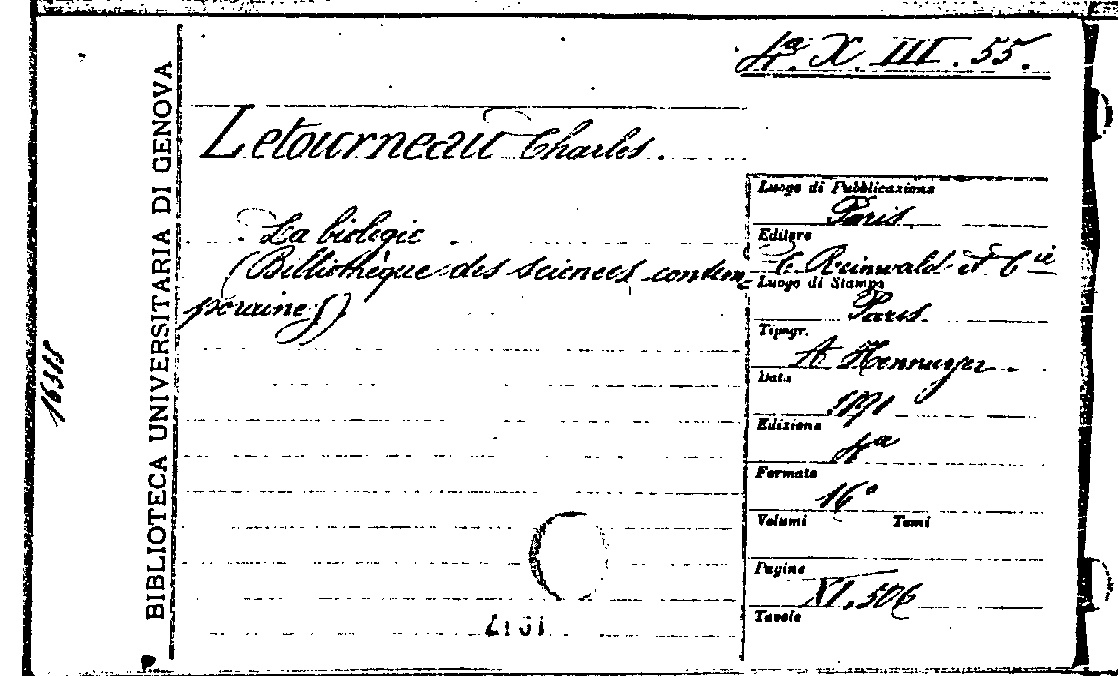 4ª. X. III. 55.
Letourneau Charles.
La biologie
(Bibliothèque des sciences contem=
poraines)
BIBLIOTECA UNIVERSITARIA DI GENOVA
Luogo di Pubblicazione
Paris
Editore
C. Reinwald et Cie
Luogo di Stampa
Paris.
Tipogr.
A. Hennuyer
Data
1891
Edizione
4ª
Formato
16º
Volumi Tomi
Pagine
XI, 506
Tavole